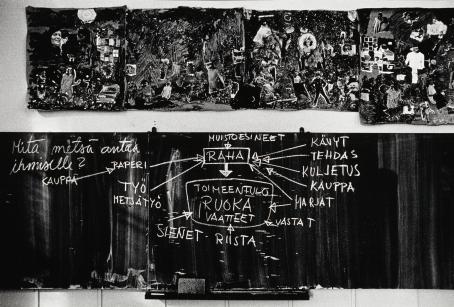 Mitä metsä antaa
ihmiselle?
KAUPPA
PAPERI
TYÖ
METSÄTYÖ
MUISTOESINEET
RAHA
TOIMEENTULO
RUOKA
VAATTEET
SIENET
RIISTA
KÄVYT
TEHDAS
KULJETUS
KAUPPA
MARJAT
VASTAT